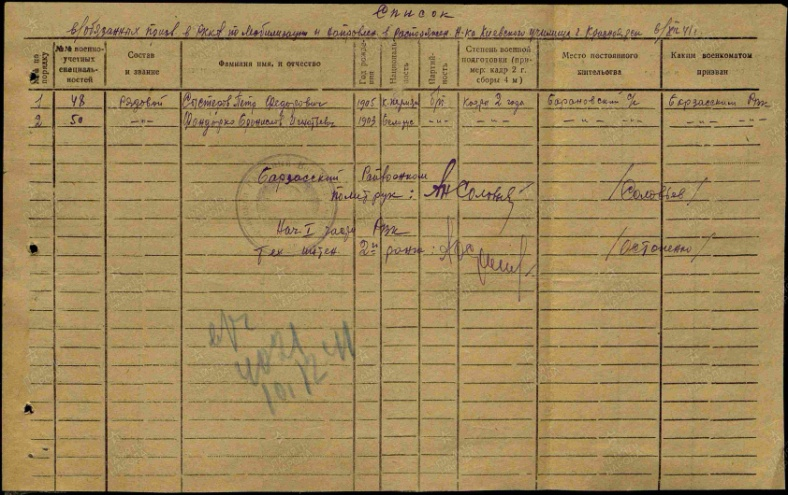 Список
в/обязанных призв в РККА по мобилизации и направлен. в распоряжен. Н-ка Киевского училища г. Красноярск
№№ по порядку
№№ военно-учетных специальностей
Состав и звание
Фамилия имя, и отчество
Год рождения
Национальность
Партийность
Степень военной подготовки (пример: кадр 2 г. сборы 4 м)
Место постоянного жительства
Каким военкоматом призван
1 48 Рядовой Федорович 1905 б/п кадра 2 года Барановский с/с Барзасским РВК
2 50 -"- 1903 Белорус -"- -"- -"- -"-
Барзасский Райвоенком
политрук: Соловьев /Соловьев/
Нач I части РВК
тех. интен. 2го ранга: /Остапенко/
4021
10.12 41